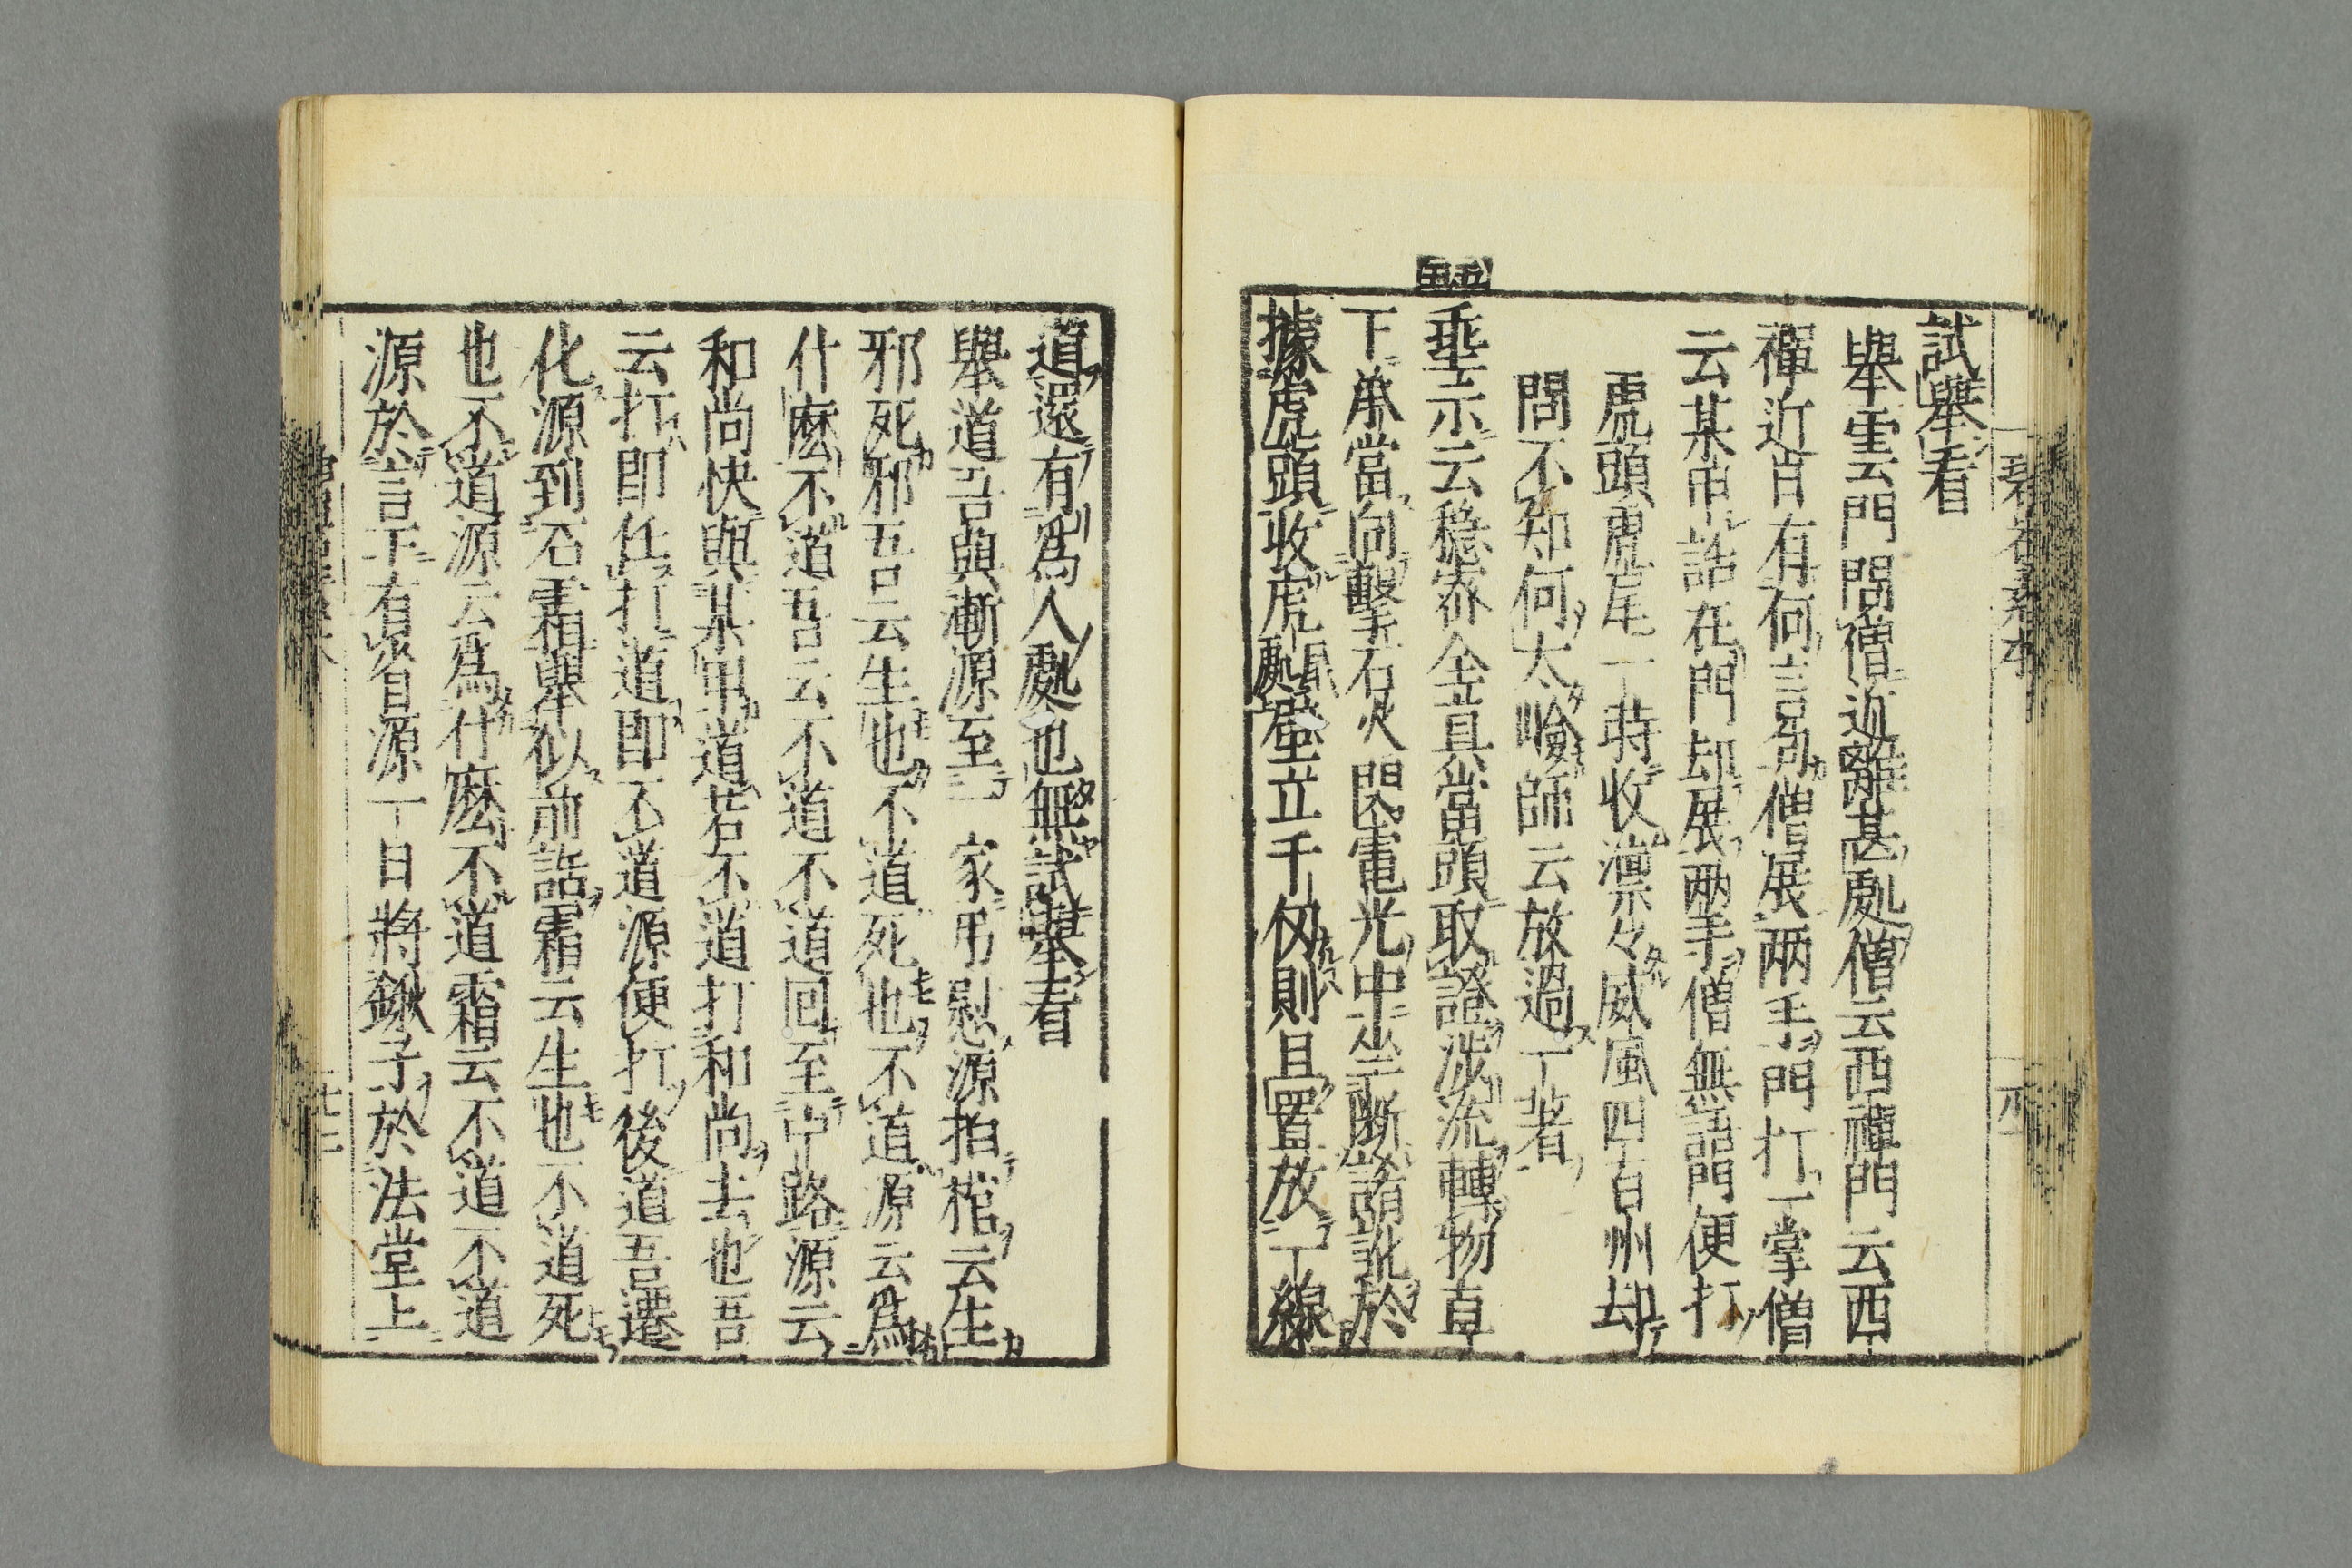 試舉看
舉雲門問僧近離甚處僧云西禪門云西
禪近日有何言句僧展兩手門打一掌僧
云某甲話在門却展兩手僧無語門便打
虎頭虎尾一時收凛々威風四百州却
問不知何太嶮師云放過一著
五十五
垂示云穩密全真當頭取證涉流轉物直
下承當向擊石火閃電光中坐斷誵訛於
據虎頭收虎尾處壁立千仞則且置放一線
道還有爲人處也無試舉看
舉道吾與漸源至一家弔慰源拍棺云生
邪死邪吾云生也不道死也不道源云爲
什麼不道吾云不道不道回至中路源云
和尚快與某甲道若不道打和尚去也吾
云打即任打道即不道源便打後道吾遷
化源到石霜舉似前話霜云生也不道死
也不道源云爲什麼不道霜云不道不道
源於言下有省源一日將鍬子於法堂上